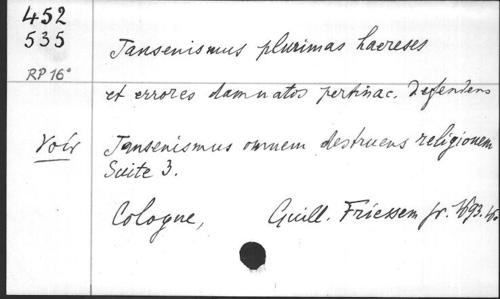 452
535
RP 16°
Jansenismus plurimas haereses
et errores damnatos pertinac. defendens
Voir
Jansenismus omnem destruens religionem
Suite 3.
Cologne, Guill. Friessem jr. 1693. 16°